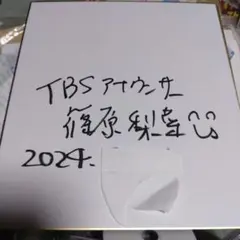 TBSアナウンサー
篠原梨菜
2024.